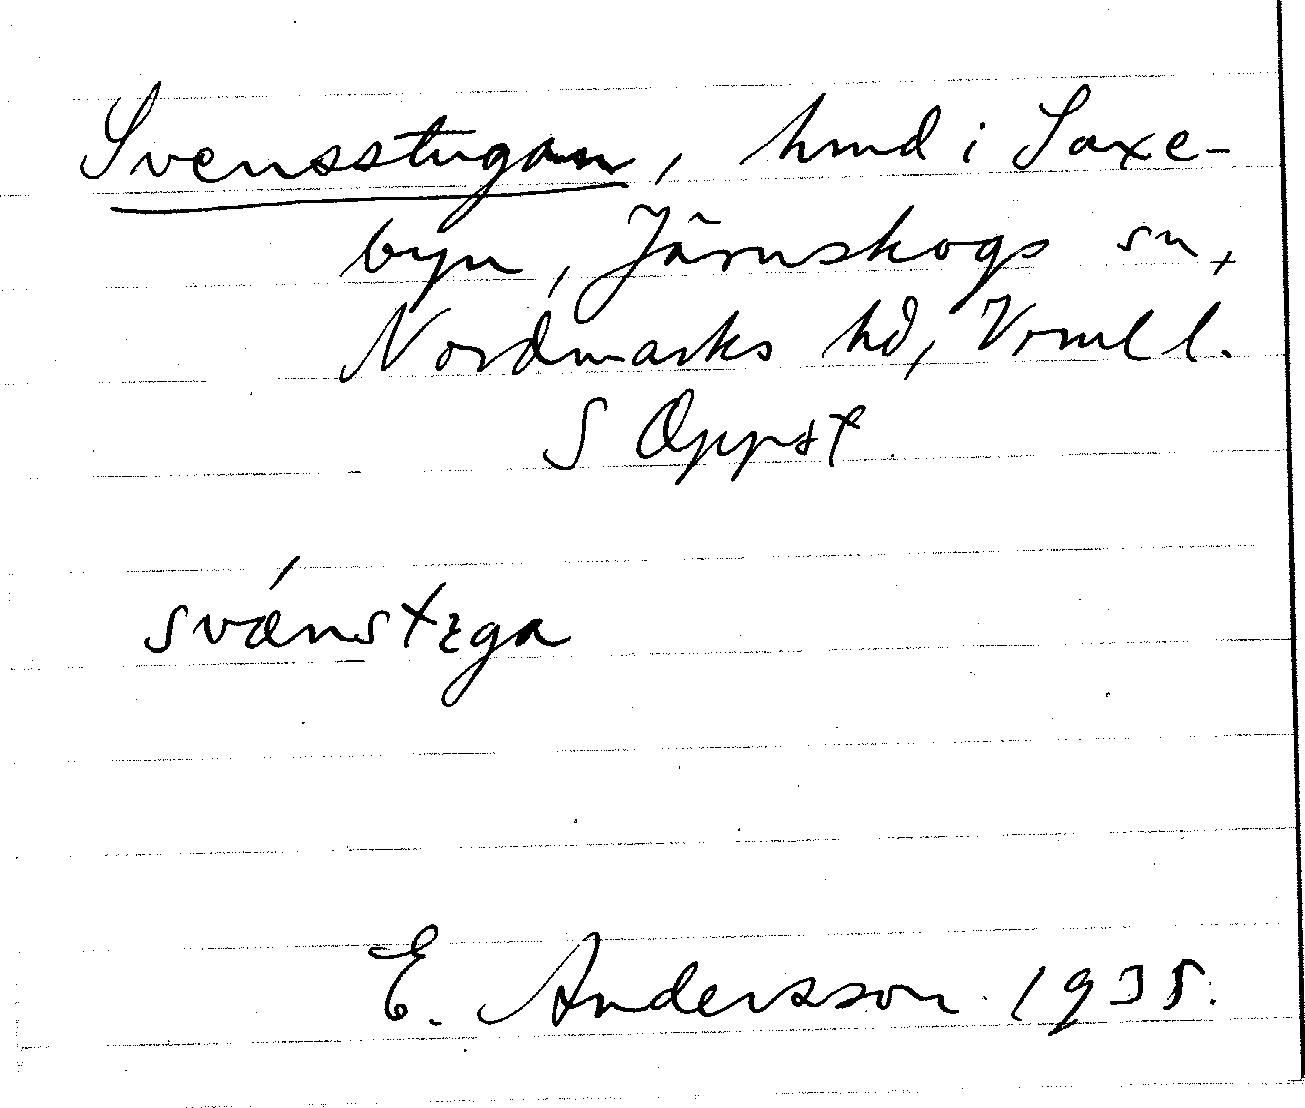 Svensstugan, hmd i Saxe-
byn, Järnskogs sn,
Nordmarks hd, Vrml l.
S Öppst.
E. Andersson 1935.